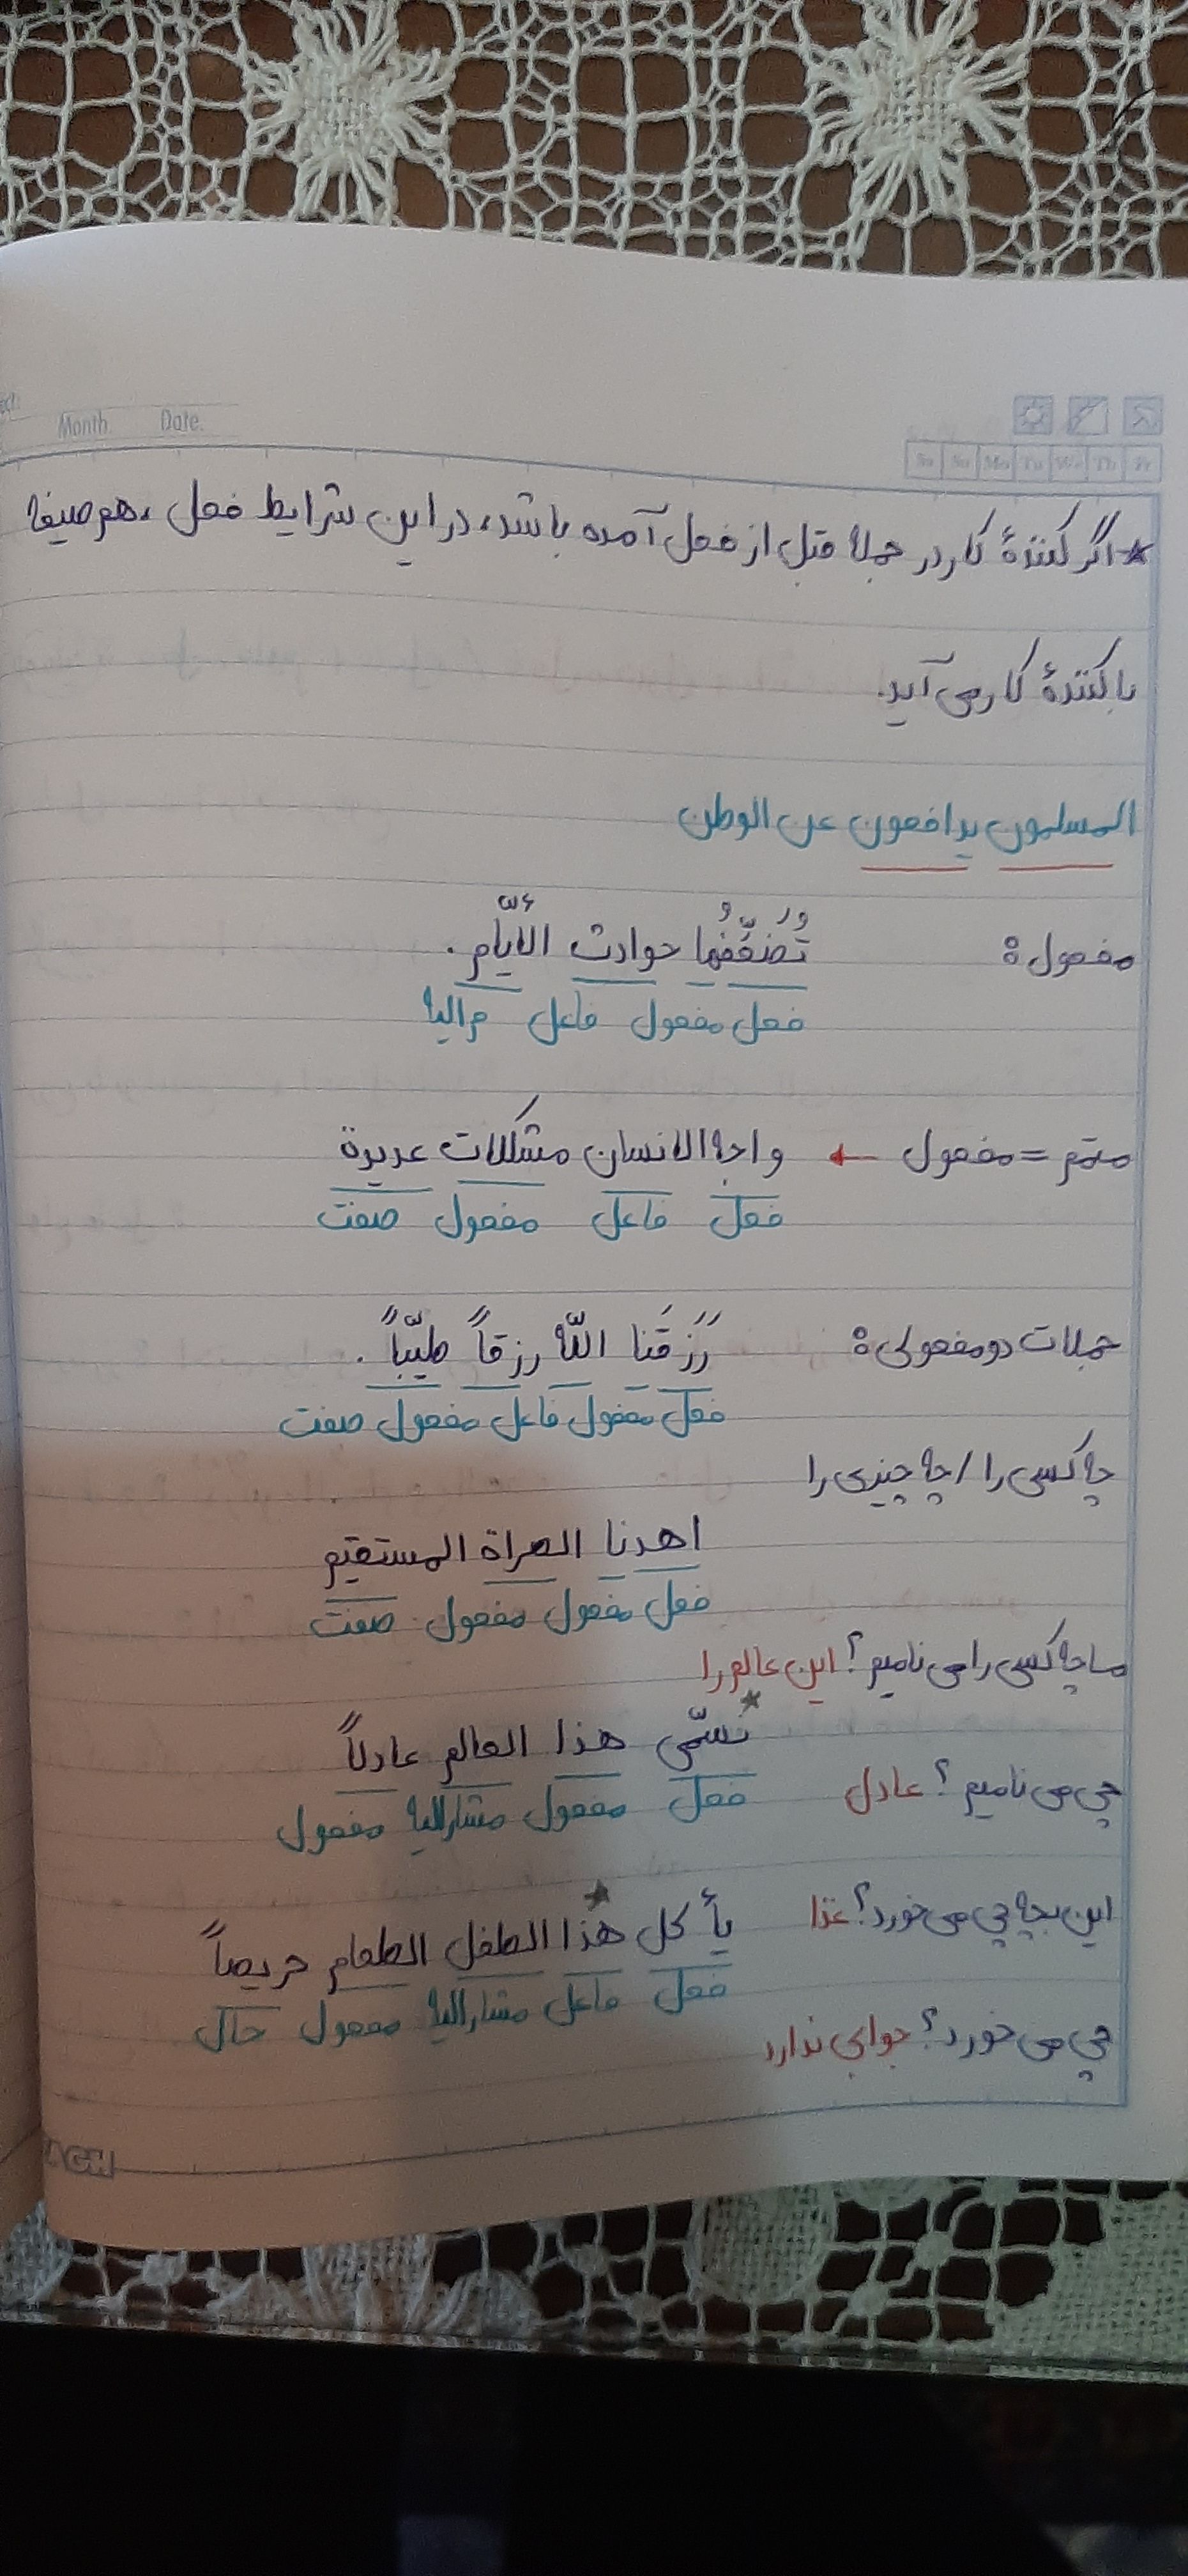 Month Date.
Sa Su Mo Tu We Th Fr
* اگر کنندهٔ کار در جملهٔ قبل از فعل آمده باشد، در این شرایط فعل، هم صیغه
با کنندهٔ کار می آید.
المسلمون یدافعون عن الوطن
مفعول: تُضَعِّفُها حوادث الأیّام.
فعل مفعول فاعل م الیه
متمم = مفعول ← واجه الانسان مشکلات عدیدة
فعل فاعل مفعول صفت
جملات دو مفعولی: رَزَقَنا اللّه رزقاً طیّباً.
فعل مفعول فاعل مفعول صفت
چه کسی را / چه چیزی را
اهدنا الصراة المستقیم
فعل مفعول مفعول صفت
ما چه کسی را می نامیم؟ این عالم را
نسمّی هذا العالم عادلاً
چی می نامیم؟ عادل
فعل مفعول مشارالیه مفعول
این بچه چی می خورد؟ غذا
یأکل هذا الطفل الطعام حریصاً
فعل فاعل مشارالیه مفعول حال
چی می خورد؟ جوابی ندارد